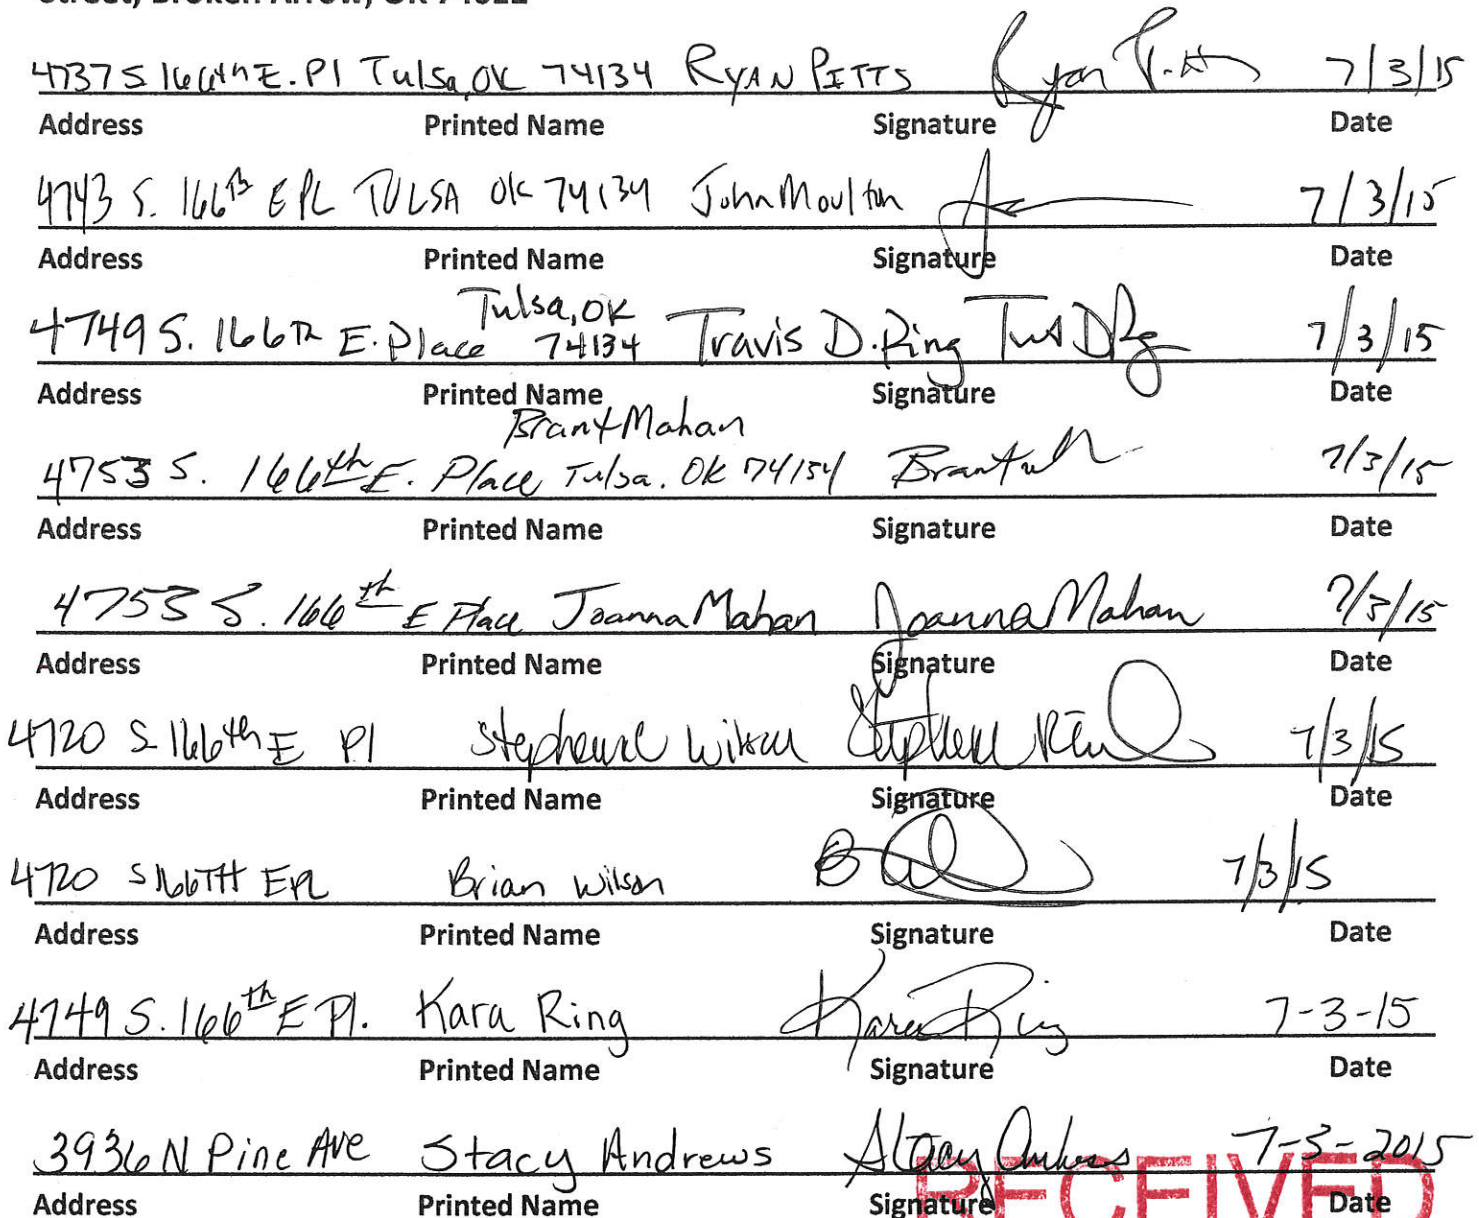 Street, Broken Arrow, OK 74012
4737 S 166th E. Pl Tulsa, OK 74134 RYAN PITTS Ryan Pitts 7/3/15
Address Printed Name Signature Date
4743 S. 166th E PL TULSA OK 74134 John Moulton 7/3/15
Address Printed Name Signature Date
Tulsa, OK
4749 S. 166th E. Place 74134 Travis D. Ring 7/3/15
Address Printed Name Signature Date
Brant Mahan
4753 S. 166th E. Place Tulsa, OK 74134 7/3/15
Address Printed Name Signature Date
4753 S. 166th E Place Joanna Mahan Joanna Mahan 7/3/15
Address Printed Name Signature Date
4720 S 166th E Pl Stephanie Wilson 7/3/15
Address Printed Name Signature Date
4720 S 166TH E PL Brian Wilson 7/3/15
Address Printed Name Signature Date
4749 S. 166th E Pl. Kara Ring Kara Ring 7-3-15
Address Printed Name Signature Date
3936 N Pine Ave Stacy Andrews Stacy Andrews 7-3-2015
RECEIVED
Address Printed Name Signature Date